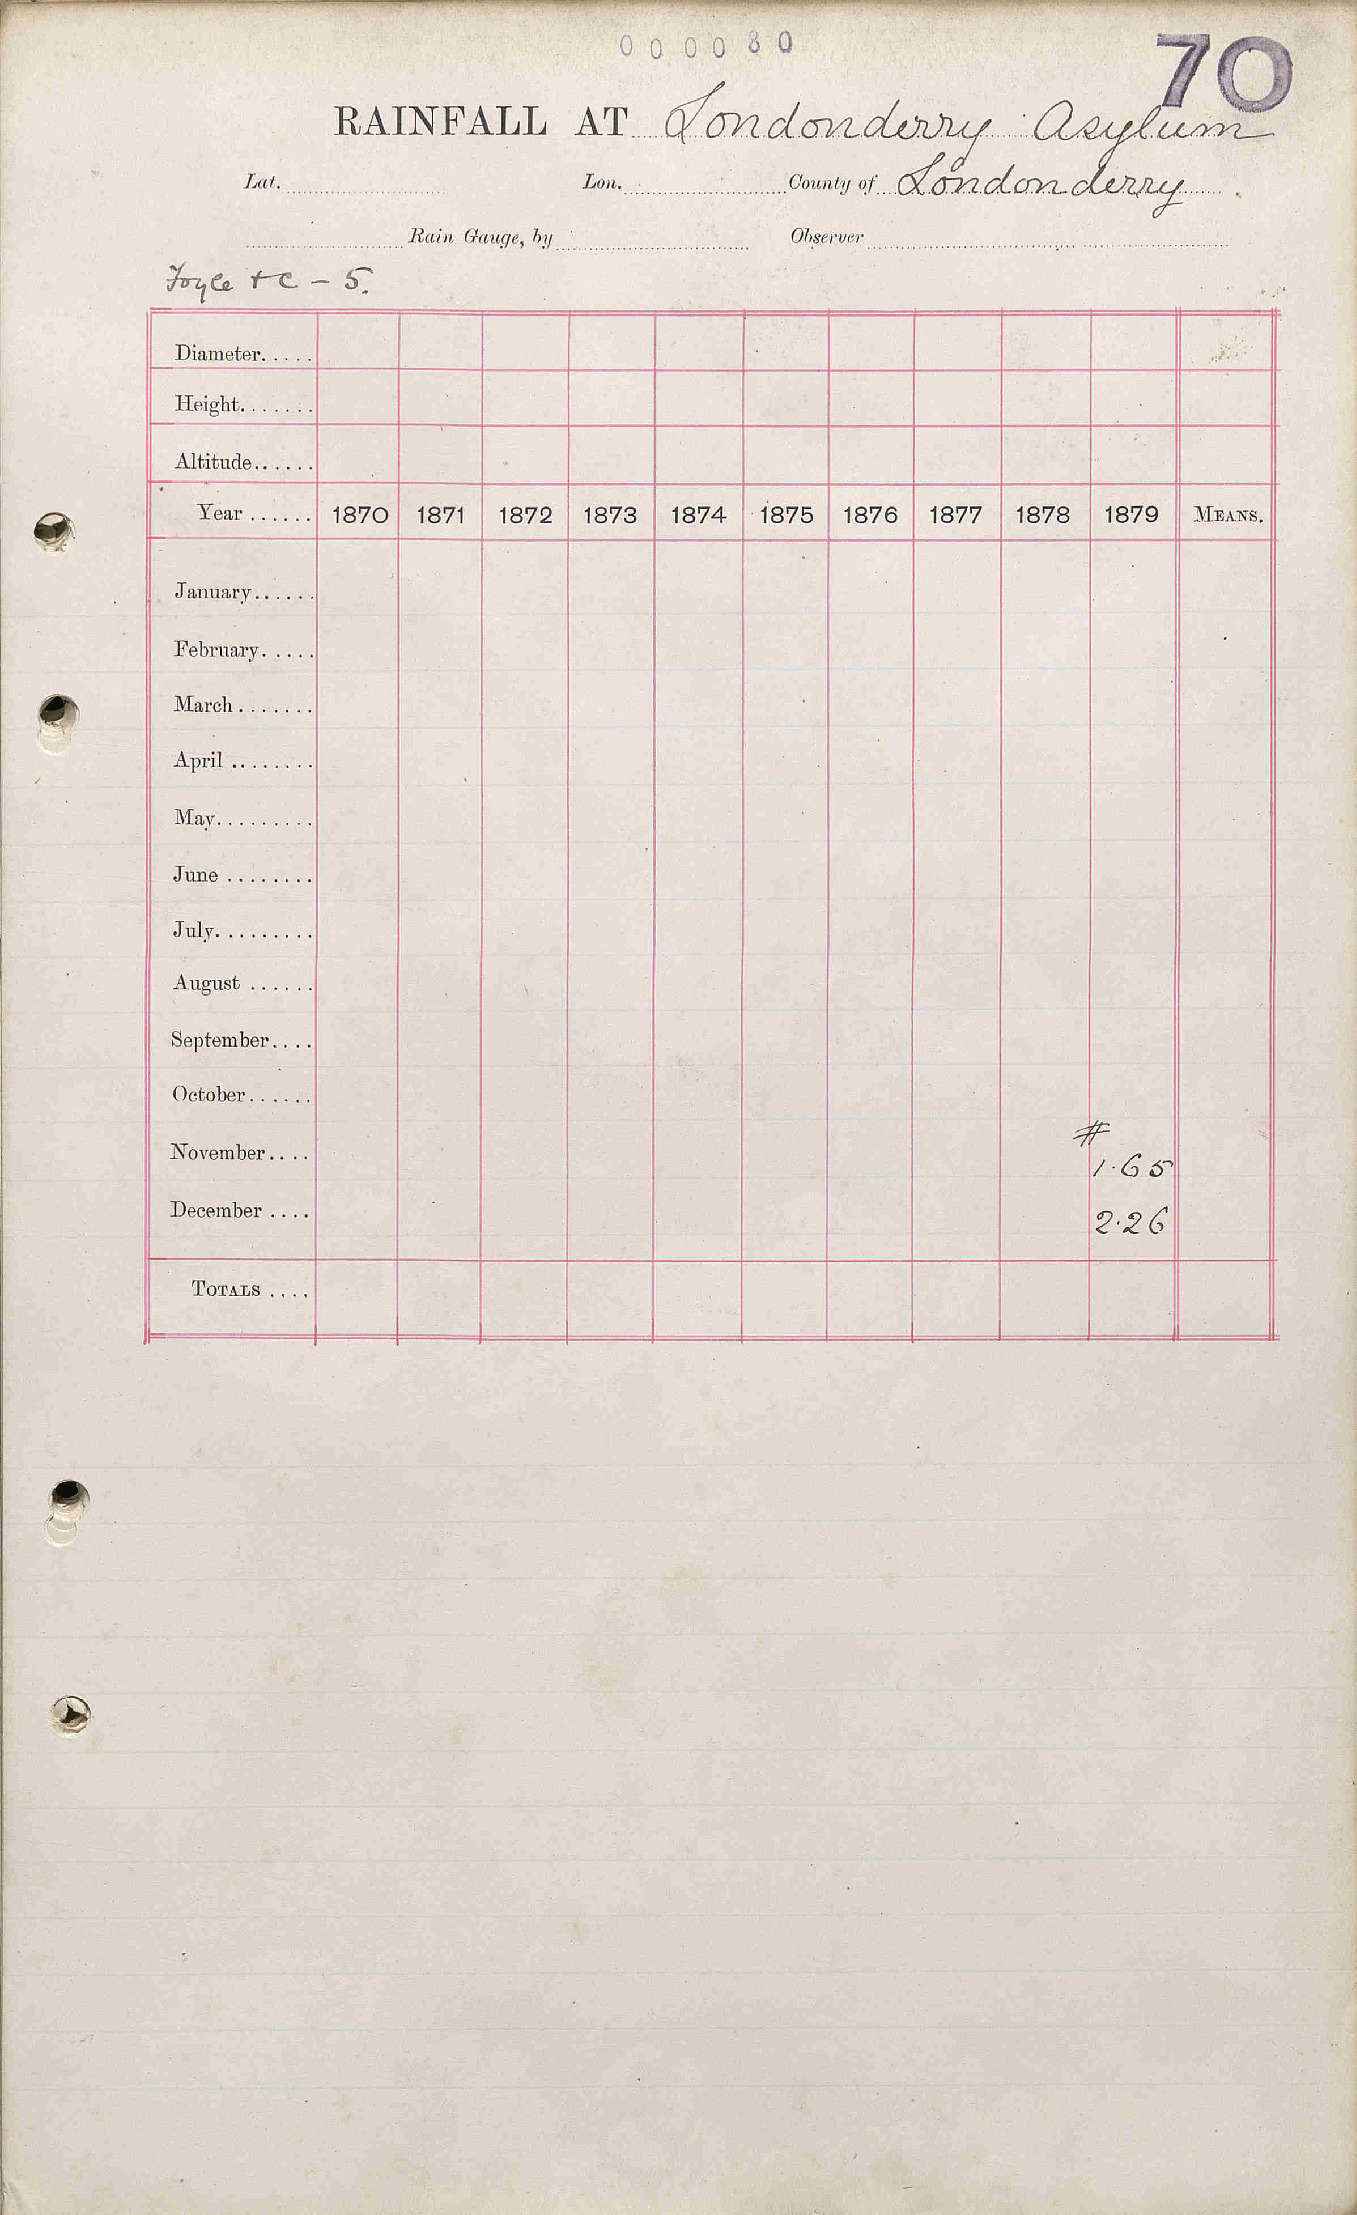 000080
70
RAINFALL AT Londonderry Asylum
Lat. Lon. County of Londonderry
Rain Gauge, by Observer
Foyle + C – 5.
Diameter.....
Height.......
Altitude......
Year ...... 1870 1871 1872 1873 1874 1875 1876 1877 1878 1879 MEANS.
January......
February.....
March.......
April ........
May.........
June ........
July.........
August ......
September....
October......
#
November.... 1.65
December .... 2.26
TOTALS ....